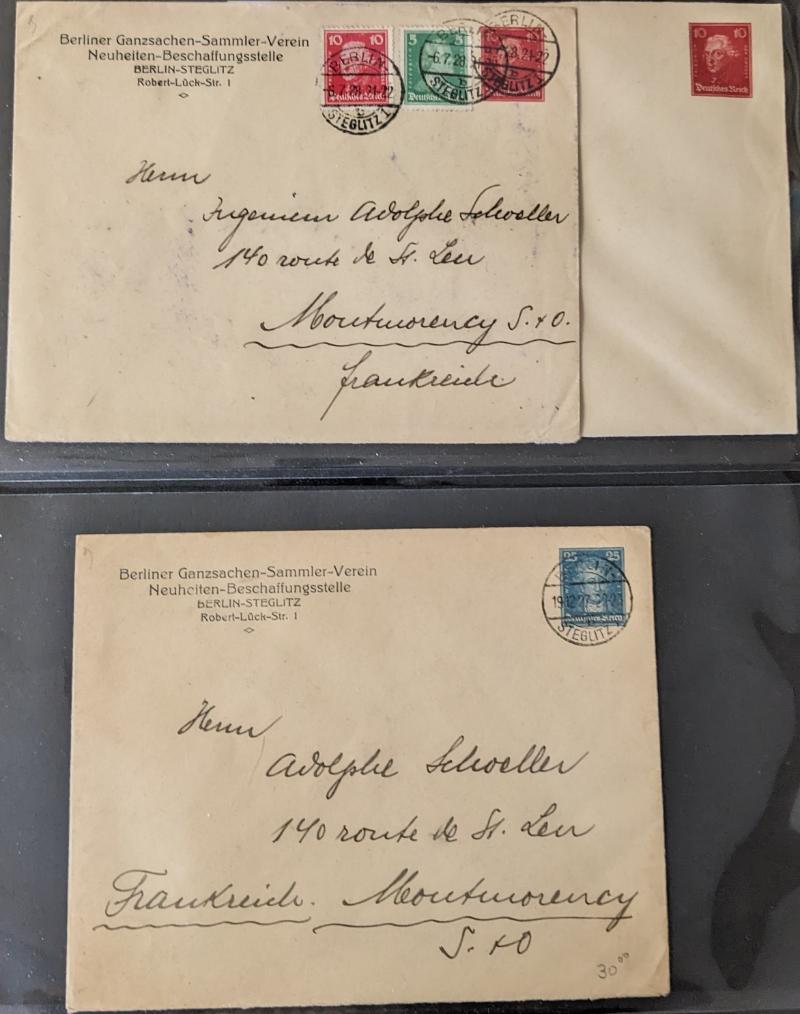 Berliner Ganzsachen-Sammler-Verein
Neuheiten-Beschaffungsstelle
BERLIN-STEGLITZ
Robert-Lück-Str. 1
10 10
Deutsches Reich
5 5
BERLIN-
-6.7.28.21-22
b
STEGLITZ 1
BERLIN-
-6.7.28.21-22
b
STEGLITZ 1
10 10
Deutsches Reich
Herrn
Ingenieur Adolphe Schoeller
140 route de St. Leu
Montmorency S. & O.
Frankreich
Berliner Ganzsachen-Sammler-Verein
Neuheiten-Beschaffungsstelle
BERLIN-STEGLITZ
Robert-Lück-Str. 1
25 25
BERLIN-
19.12.27
STEGLITZ 1
Herrn
Adolphe Schoeller
140 route de St. Leu
Frankreich. Montmorency
S. & O
30 00